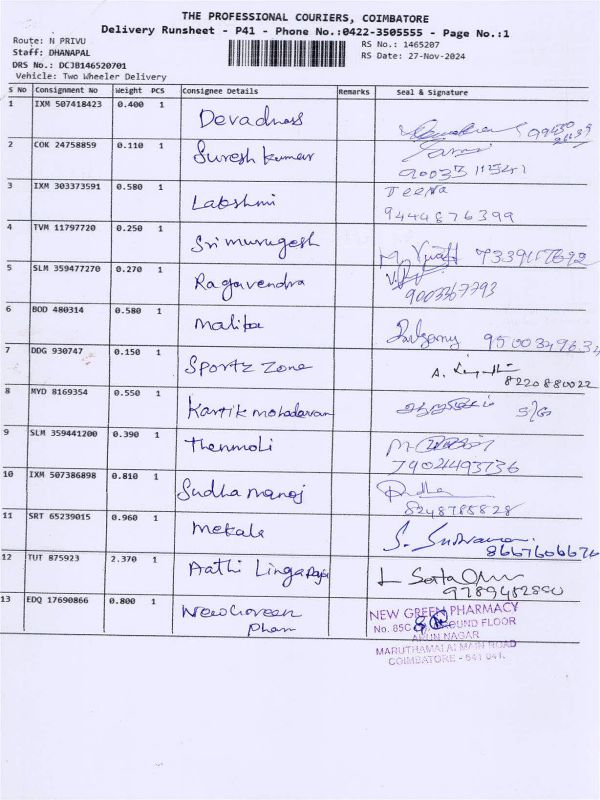 THE PROFESSIONAL COURIERS, COIMBATORE
Delivery Runsheet - P41 - Phone No.:0422-3505555 - Page No.:1
Route: N PRIVU
RS No.: 1465207
Staff: DHANAPAL
RS Date: 27-Nov-2024
DRS No.: DCJB146520701
Vehicle: Two Wheeler Delivery
S No Consignment No Weight PCS Consignee Details Remarks Seal & Signature
1 IXM 507418423 0.400 1 Devadhass
2 COK 24758859 0.110 1 Suresh kumar
3 IXM 303373591 0.580 1 Lakshmi Teena
9444876399
4 TVM 11797720 0.250 1 Sri murugesh
5 SLM 359477270 0.270 1 Ragavendra
9003367793
6 BOD 480314 0.580 1 Malika 9500349634
7 DDG 930747 0.150 1 Sportz Zone A.
8220880022
8 MYD 8169354 0.550 1 Kartik mohadevan
9 SLM 359441200 0.390 1 Thenmoli
7904493736
10 IXM 507386898 0.810 1 Sudha manoj
8248785828
11 SRT 65239015 0.960 1 Mekala S.
8667606674
12 TUT 875923 2.370 1 Aathi Linga Raja
9789482880
13 EDQ 17690866 0.800 1 New Green
Pham
NEW GREEN PHARMACY
No. 85C GROUND FLOOR
ARUN NAGAR
MARUTHAMALAI MAIN ROAD
COIMBATORE - 641 041.